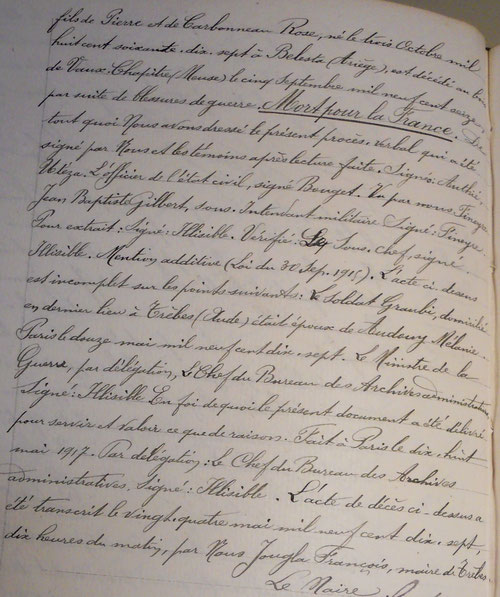 fils de Pierre et de Carbonneau Rose, né le trois Octobre mil
huit cent soixante-dix-sept à Belesta (Ariège), est décédé au bois
de Vaux-Chapitre (Meuse) le cinq Septembre mil neuf cent seize
par suite de blessures de guerre. Mort pour la France. De
tout quoi Nous avons dressé le présent procès-verbal qui a été
signé par Nous et les témoins après lecture faite. Signé:
L'officier de l'état civil, signé Bouget. Vu par nous Fineyre
Jean Baptiste Gilbert, sous-Intendant militaire Signé: Fineyre
Pour extrait: Signé: Illisible. Vérifié: Le Sous-chef, signé
Illisible. Mention additive (Loi du 30 Sep. 1915). L'acte ci-dessus
est incomplet sur les points suivants: Le soldat Graubi, domicilié
en dernier lieu à Trèbes (Aude) était époux de Audouy Mélanie.
Paris le douze mai mil neuf cent dix-sept. Le Ministre de la
Guerre, par délégation, Le Chef du Bureau des Archives administratives
Signé: Illisible En foi de quoi le présent document a été délivré
pour servir et valoir ce que de raison. Fait à Paris le dix-huit
mai 1917. Par délégation: le Chef du Bureau des Archives
administratives. Signé: Illisible. L'acte de décès ci-dessus a
été transcrit le vingt-quatre mai mil neuf cent dix-sept,
dix heures du matin, par Nous Jougla François, maire de Trèbes.
Le Maire,